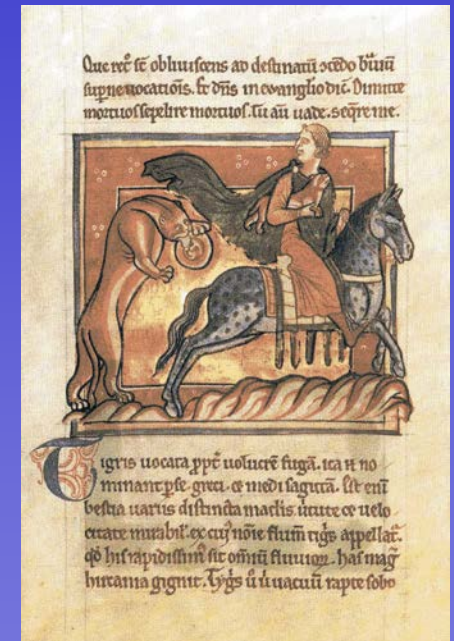 Que retro sunt obliuiscens ad destinatū ꝯtēdo bůiū
supne uocatiōis. Et dn̄s in ewanglio dic̄. Dimitte
mortuos sepelire mortuos. Tu aū uade. seqͣre me.
Tigris uocata ꝓpt̄ uolucrē fugā. ita n̄ no
minant pse. greci. ⁊ medi sagittā. Est enī
bestia uariis distincta maclis. uirtute ⁊ uelo
citate mirabil'. ex cuiꝰ nōie flum̄ tigͥs appellat̄.
qd̄ his rapidissimꝰ sit omniū fluuioꝝ. has mag̅
hircania gignit. Tygͥs ů ů uacuū rapte sobo